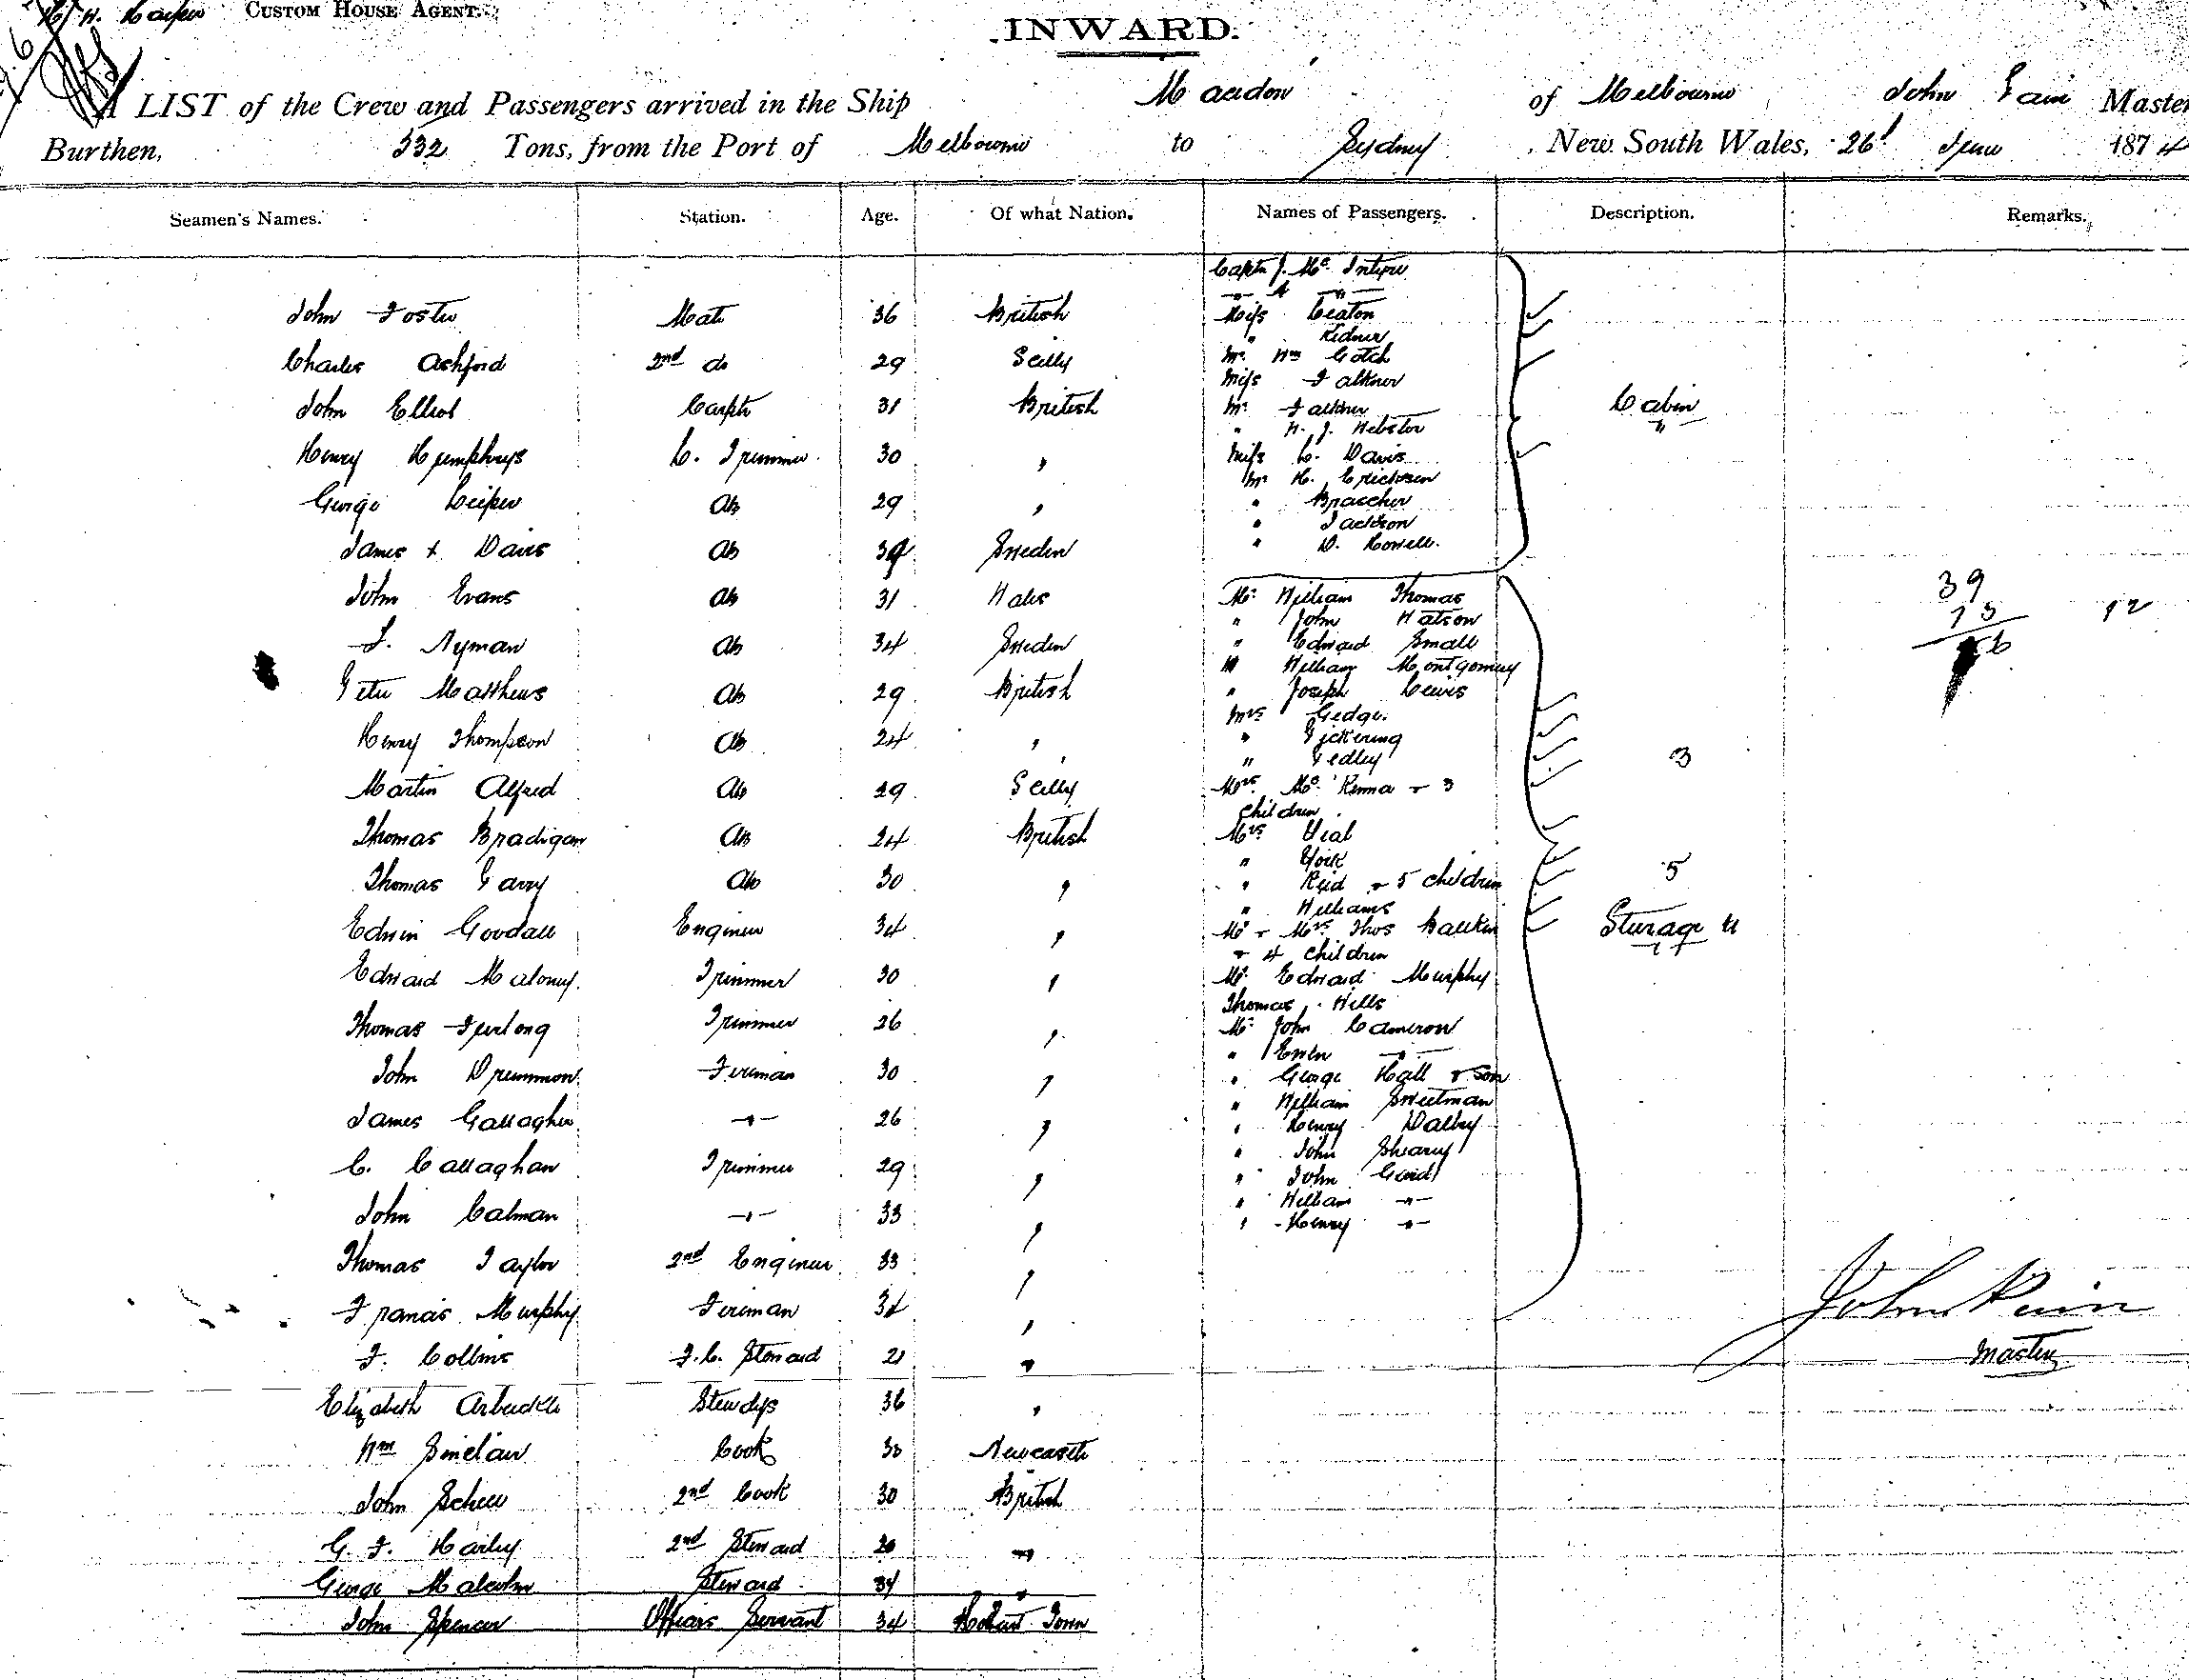 H. CUSTOM HOUSE AGENT.
INWARD.
A LIST of the Crew and Passengers arrived in the Ship Macedon of Melbourne John Pain Master
Burthen, 532 Tons, from the Port of Melbourne to Sydney, New South Wales, 26 June 1874
Seamen's Names. Station. Age. Of what Nation. Names of Passengers. Description. Remarks.
John Foster Mate 36 British
Charles Ashford 2nd do 29 Scilly
John Elliot Carptr 31 British
Henry Humphrys C. Trimmer 30 "
George Leiper AB 29 "
James + Davis AB 39 Sweden
John Evans AB 31 Wales
F. Nyman AB 34 Sweden
Peter Matthews AB 29 British
Henry Thompson AB 24 "
Martin Alfred AB 29 Scilly
Thomas Bradigan AB 24 British
Thomas Garry AB 30 "
Edwin Goodall Engineer 34 "
Edward Maloney Trimmer 30 "
Thomas Furlong Trimmer 26 "
John Drummon Fireman 30 "
James Gallagher -"- 26 "
C. Callaghan Trimmer 29 "
John Calman -"- 33 "
Thomas Taylor 2nd Engineer 33 "
Francis Murphy Fireman 34 "
F. Collins F.C. Steward 21 "
Elizabeth Arbuckle Stewdss 36 "
Wm Sinclair Cook 33 Newcastle
John Schew 2nd Cook 30 British
G. F. Harley 2nd Steward 26 "
George Malcolm Steward 34 "
John Spencer Officers Servant 34 Hobart Town
Captn J. Mc Intyre
-"- A -"-
Miss Leaton
" Kidner
Mr Wm Gotch
Miss Falkner
Mr Falkner
" W. J. Webster
Miss C. Davis
Mr H. Erickson
" Braecher
" Jackson
" D. Howell
Cabin
"
Mr William Thomas
" John Watson
" Edward Small
" William Montgomery
" Joseph Lewis
Mrs Gedge
" Pickering
" Pedley
Mrs Mc Kenna + 3
children
3
Mrs Vial
" York
" Reid + 5 children
5
" Williams
Mr + Mrs Thos Hawkin
+ 4 children
Steerage 4
Mr Edward Murphy
Thomas Hills
Mr John Cameron
" Ewen -"-
" George Hall & Son
" William Sweetman
" Henry Dalby
" John Sheary
" John Gard
" William -"-
" Henry -"-
39
13
12
John Pain
Master